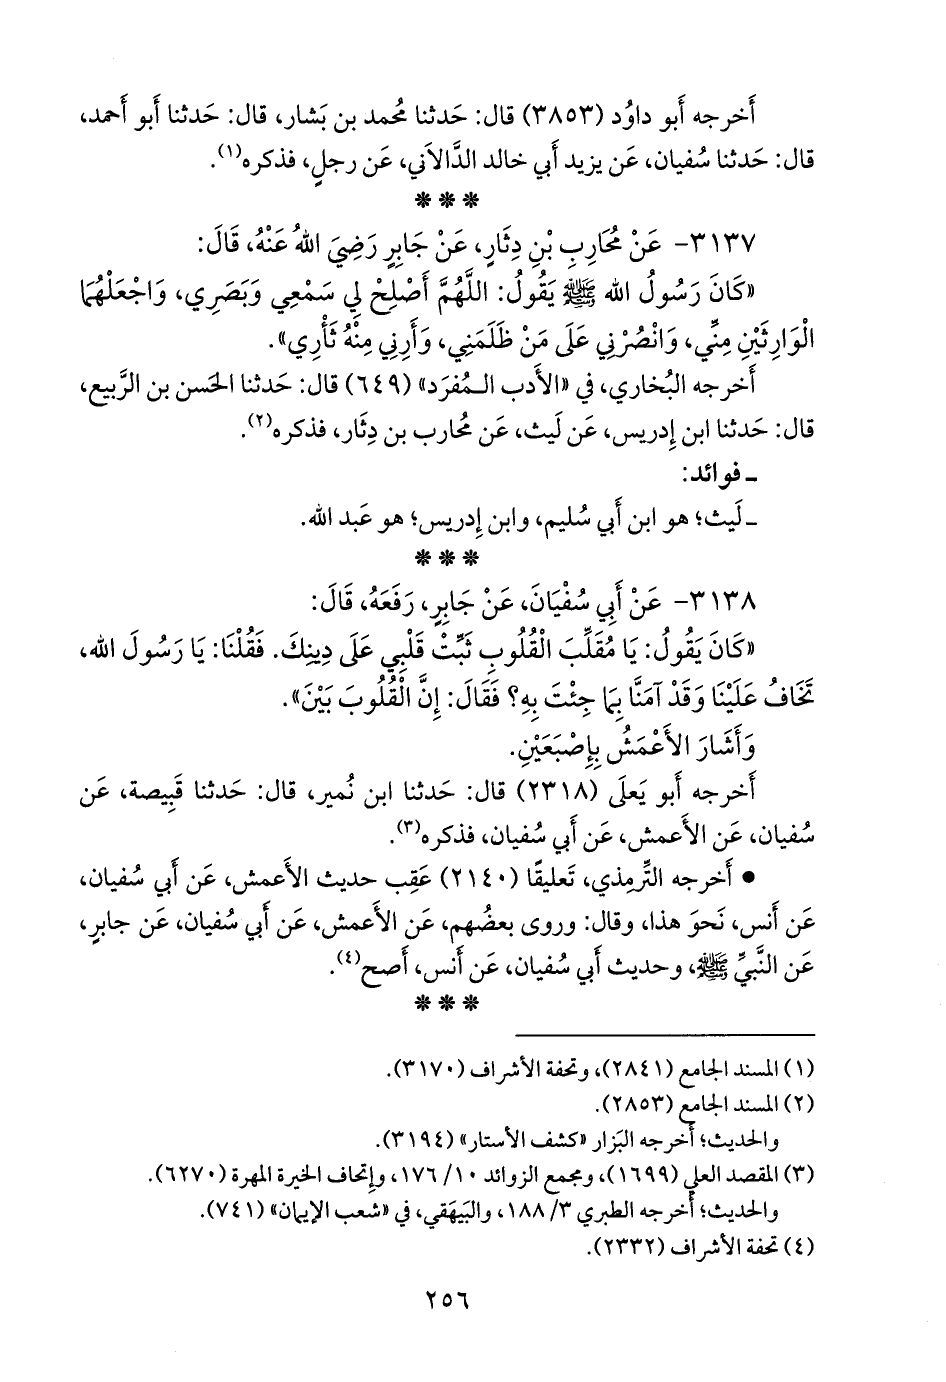 أَخرجه أَبو داوُد (٣٨٥٣) قال: حَدثنا مُحمد بن بَشار، قال: حَدثنا أَبو أَحمد،
قال: حَدثنا سُفيان، عَن يزيد أَبي خالد الدَّالاَني، عَن رجلٍ، فذكره(١).
***
٣١٣٧- عَنْ مُحَارِبِ بْنِ دِثَارٍ، عَنْ جَابِرٍ رَضِيَ اللهُ عَنْهُ، قَالَ:
«كَانَ رَسُولُ الله ﷺ يَقُولُ: اللَّهُمَّ أَصْلِحْ لِي سَمْعِي وَبَصَرِي، وَاجْعَلْهُمَا
الْوَارِثَيْنِ مِنِّي، وَانْصُرْنِي عَلَى مَنْ ظَلَمَنِي، وَأَرِنِي مِنْهُ ثَأْرِي».
أَخرجه البُخاري، في «الأَدب الـمُفرَد» (٦٤٩) قال: حَدثنا الحَسن بن الرَّبيع،
قال: حَدثنا ابن إِدريس، عَن لَيث، عَن مُحارب بن دِثار، فذكره(٢).
ـ فوائد:
ـ لَيث؛ هو ابن أَبي سُليم، وابن إِدريس؛ هو عَبد الله.
***
٣١٣٨- عَنْ أَبِي سُفْيَانَ، عَنْ جَابِرٍ، رَفَعَهُ، قَالَ:
«كَانَ يَقُولُ: يَا مُقَلِّبَ الْقُلُوبِ ثَبِّتْ قَلْبِي عَلَى دِينِكَ. فَقُلْنَا: يَا رَسُولَ الله،
تَخَافُ عَلَيْنَا وَقَدْ آمَنَّا بِمَا جِئْتَ بِهِ؟ فَقَالَ: إِنَّ الْقُلُوبَ بَيْنَ».
وَأَشَارَ الأَعْمَشُ بِإِصْبَعَيْنِ.
أَخرجه أَبو يَعلَى (٢٣١٨) قال: حَدثنا ابن نُمير، قال: حَدثنا قَبِيصة، عَن
سُفيان، عَن الأَعمش، عَن أَبي سُفيان، فذكره(٣).
• أَخرجه التِّرمِذي، تَعليقًا (٢١٤٠) عَقِب حديث الأَعمش، عَن أَبي سُفيان،
عَن أَنس، نَحوَ هذا، وقال: وروى بعضُهم، عَن الأَعمش، عَن أَبي سُفيان، عَن جابرٍ،
عَن النَّبيِّ ﷺ، وحديث أَبي سُفيان، عَن أَنس، أَصح(٤).
***
(١) المسند الجامع (٢٨٤١)، وتحفة الأشراف (٣١٧٠).
(٢) المسند الجامع (٢٨٥٣).
والحديث؛ أَخرجه البَزار «كشف الأستار» (٣١٩٤).
(٣) المقصد العلي (١٦٩٩)، ومجمع الزوائد ١٠/ ١٧٦، وإِتحاف الخِيرة المهرة (٦٢٧٠).
والحديث؛ أَخرجه الطبري ٣/ ١٨٨، والبَيهَقي، في «شعب الإيمان» (٧٤١).
(٤) تحفة الأشراف (٢٣٣٢).
٢٥٦